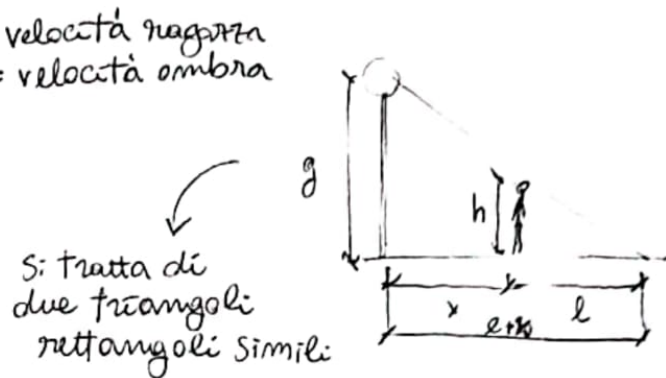 velocità ragazza
= velocità ombra
g
h
Si tratta di
due triangoli
rettangoli simili
x
l
l+x